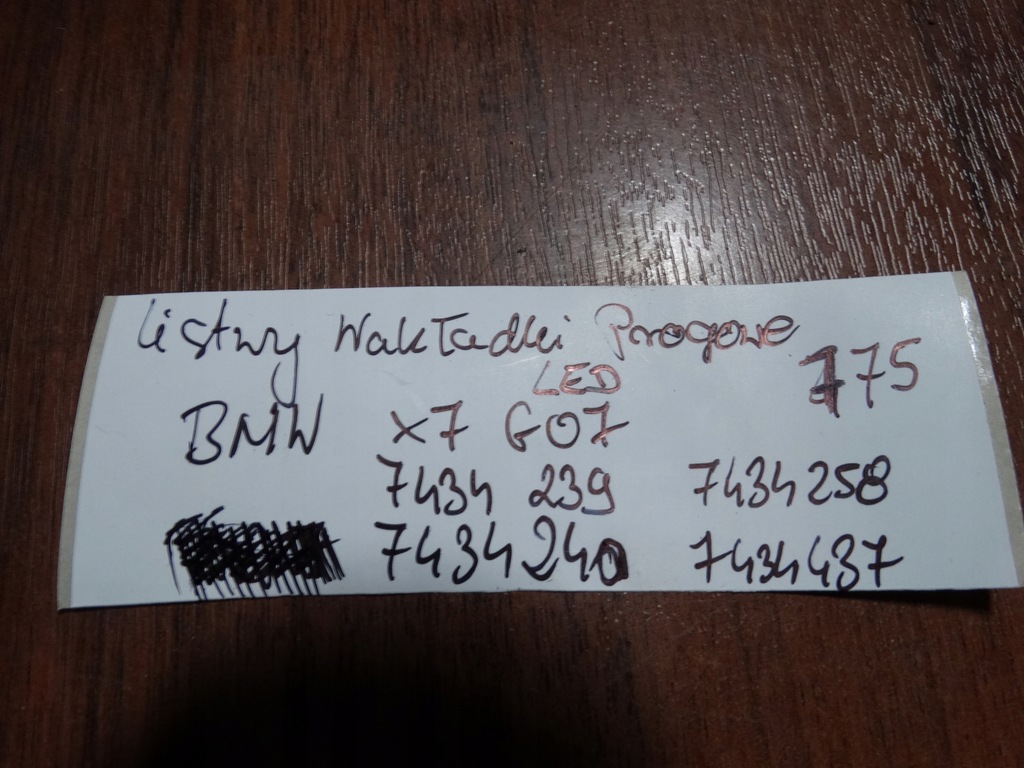 Listwy Nakładki Progowe
LED 175
BMW X7 G07
7434 239 7434258
7434240 7434437